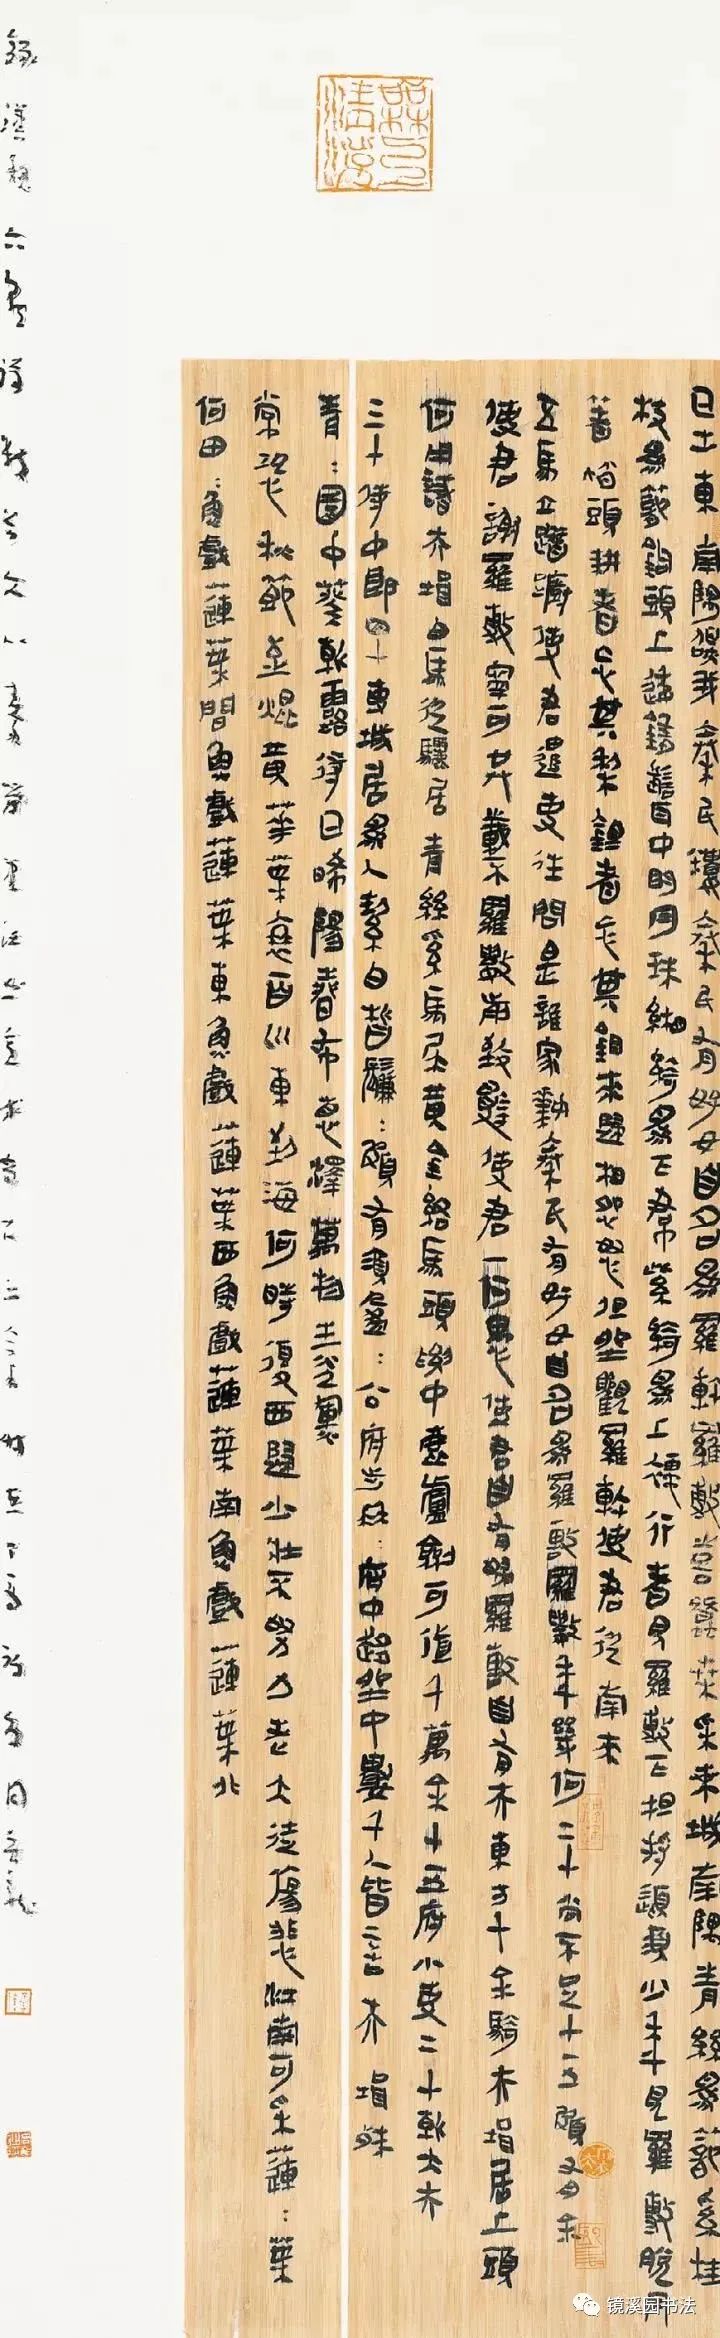 日出東南隅照我秦氏樓秦氏有好女自名為羅敷羅敷喜蠶桑采桑城南隅青絲為籠系桂
枝為籠鉤頭上倭墮髻耳中明月珠緗綺為下帬紫綺為上襦行者見羅敷下担捋髭須少年見羅敷脫帽
著帩頭耕者忘其犁鋤者忘其鋤來歸相怨怒但坐觀羅敷使君從南來
五馬立踟躕使君遣吏往問是誰家姝秦氏有好女自名為羅敷羅敷年幾何二十尚不足十五頗有余
使君謝羅敷寧可共載不羅敷前致辭使君一何愚使君自有婦羅敷自有夫東方千余騎夫壻居上頭
何用識夫壻白馬從驪居青絲系馬尾黃金絡馬頭腰中鹿盧劍可值千萬余十五府小吏二十朝大夫
三十侍中郎四十專城居為人潔白皙鬑:頗有須盈:公府步冉:府中趨坐中數千人皆言夫壻殊
青:園中葵朝露待日晞陽春布德澤萬物生光輝
常恐秋節至焜黃華葉衰百川東到海何時復西歸少壯不努力老大徒傷悲江南可采蓮:葉
何田:魚戲蓮葉間魚戲蓮葉東魚戲蓮葉西魚戲蓮葉南魚戲蓮葉北
錄漢魏六
镜溪园书法